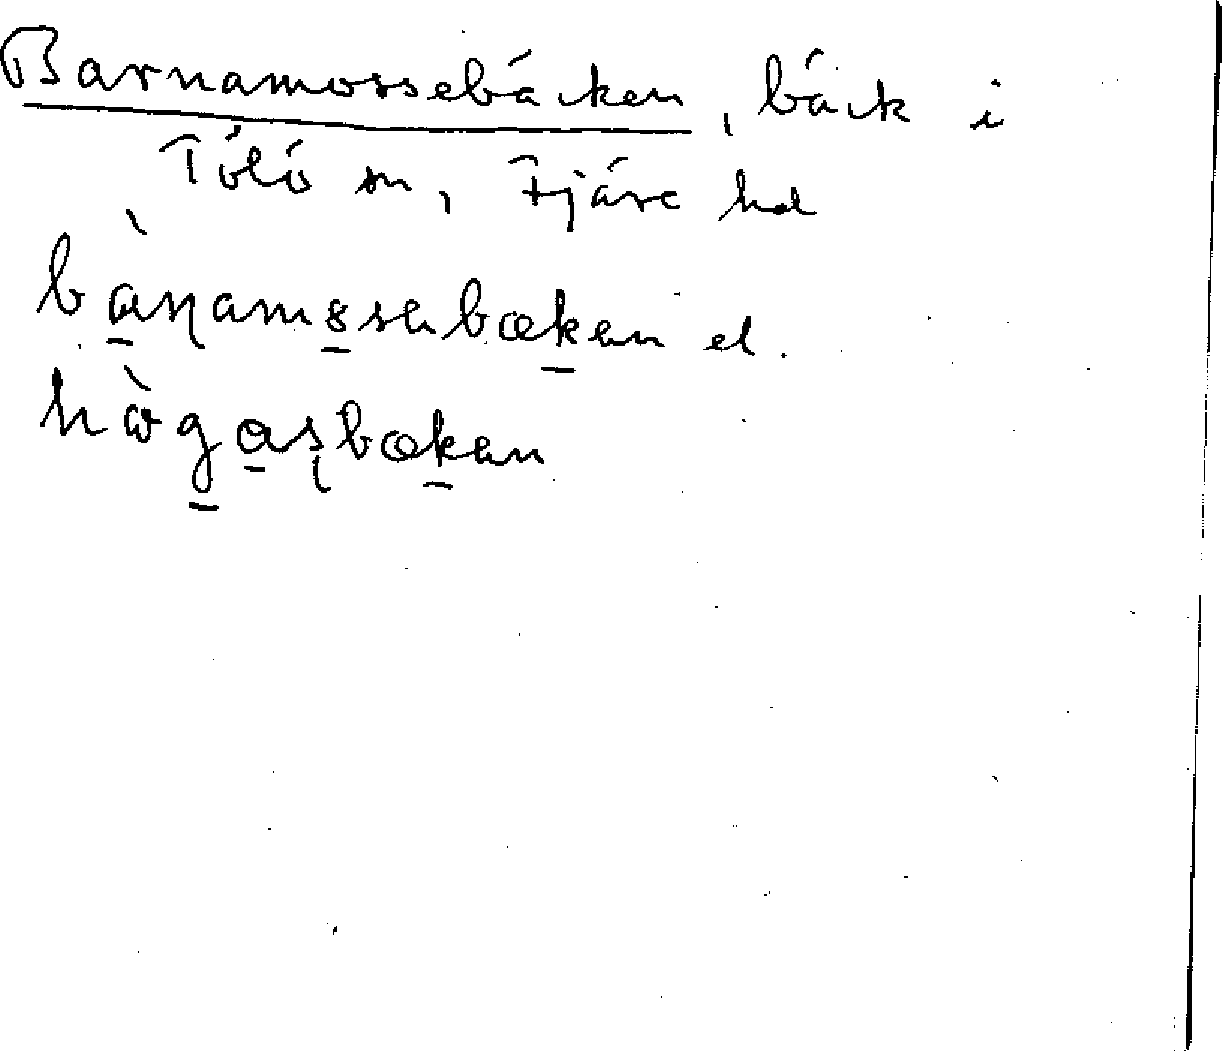 Barnamossebäcken, bäck i
Tölö sn, Fjäre hd
bànamosebæken el.
hògasbækan